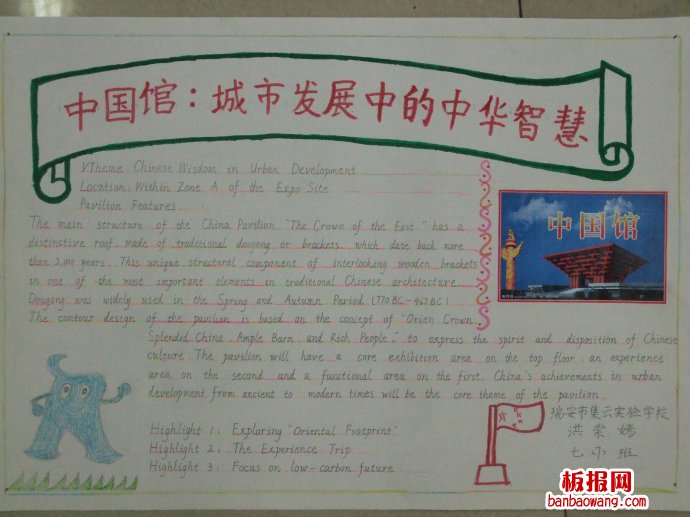 中国馆：城市发展中的中华智慧
VTheme: Chinese Wisdom in Urban Development
Location: Within Zone A of the Expo Site
Pavilion Features
The main structure of the China Pavilion, "The Crown of the East," has a
distinctive roof, made of traditional dougong or brackets, which date back more
than 2,000 years. This unique structural component of interlocking wooden brackets
in one of the most important elements in traditional Chinese architecture.
Dougong was widely used in the Spring and Autumn Period (770 BC-467 BC)
The contour design of the pavilion is based on the concept of "Orien Crown,
Splendid China, Ample Barn, and Rich People," to express the spirit and disposition of Chinese
culture. The pavilion will have a core exhibition area on the top floor, an experience
area on the second and a functional area on the first. China's achievements in urban
development from ancient to modern times will be the core theme of the pavilion.
Highlight 1: Exploring "Oriental Footprint"
Highlight 2: The Experience Trip
Highlight 3: Focus on low-carbon future
中国馆
瑞安市集云实验学校
洪
嫣
班
板报网
banbaowang.com